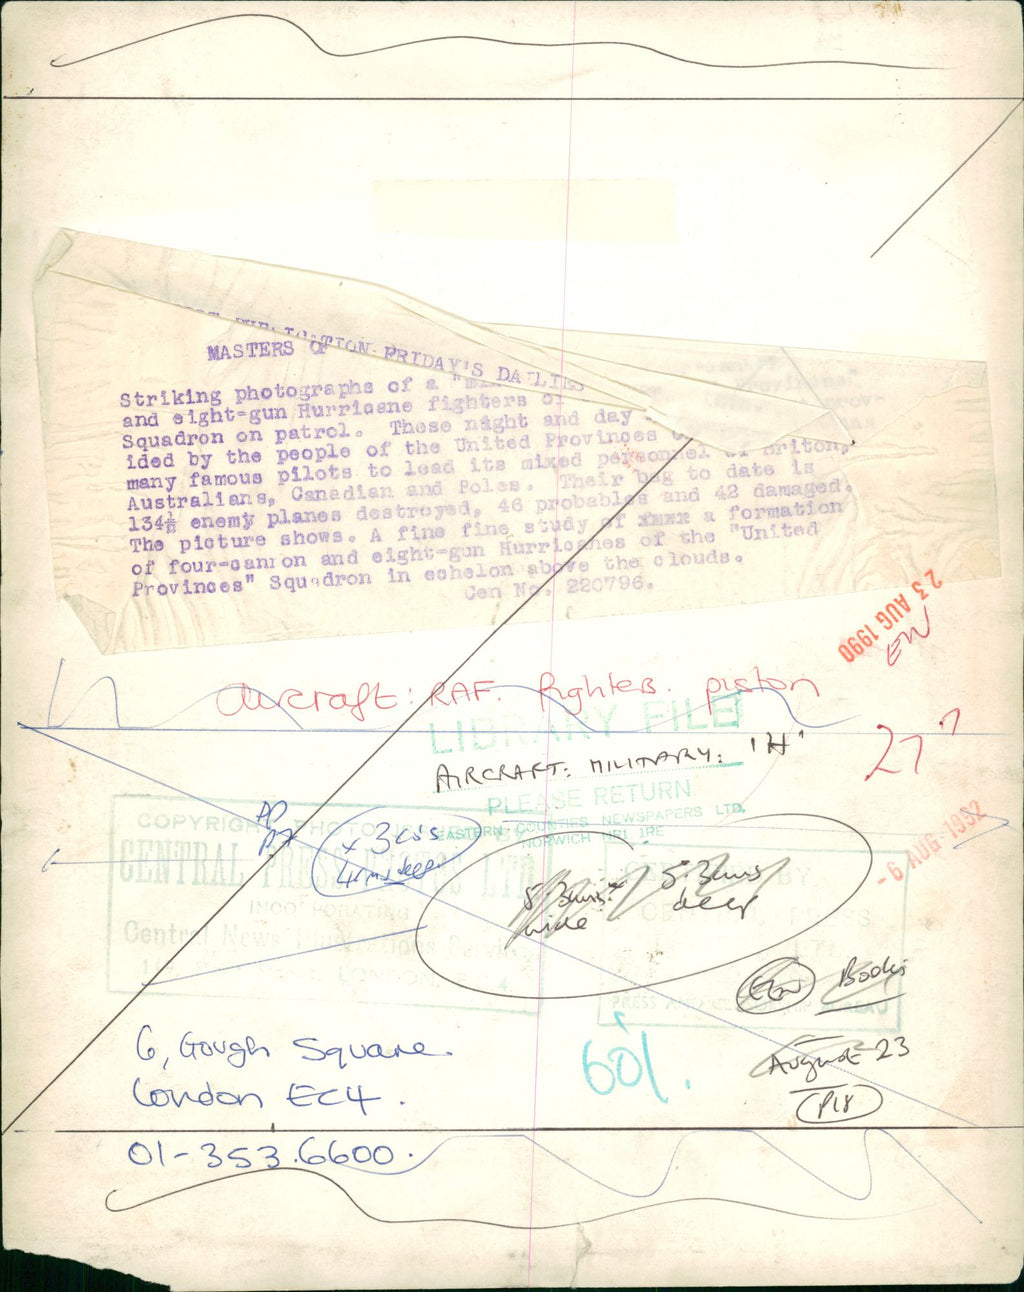 PUBLICATION FRIDAY'S DAILIES
MASTERS OF
Striking photographs of a "mi
and eight-gun Hurricane fighters of
Squadron on patrol. These night and day
ided by the people of the United Provinces
many famous pilots to lead its mixed personnel of Briton,
Australians, Canadian and Poles. Their bag to date is
134½ enemy planes destroyed, 46 probables and 42 damaged.
The picture shows. A fine fine study of a formation
of four-cannon and eight-gun Hurricanes of the "United
Provinces" Squadron in echelon above the clouds.
Cen No. 220796.
23 AUG 1990
EW
Aircraft: RAF. fighters. piston
LIBRARY FILE
AIRCRAFT: MILITARY: 'H'
27
PLEASE RETURN
EASTERN COUNTIES NEWSPAPERS LTD.
NORWICH NR1 1RE
- 9 AUG 1982
COPYRIGHT PHOTO
CENTRAL PRESS PHOTOS LTD
INCORPORATING
Central News Illustrations Service
LONDON, E.C. 4.
x 3 co's
BY
CENTRAL PRESS
LTD
PRESS AND BUREAU
5.3cms
wide
5.3cms
deep
EEN Books
60%.
August 23
P18
6, Gough Square.
London EC4.
01-353.6600.